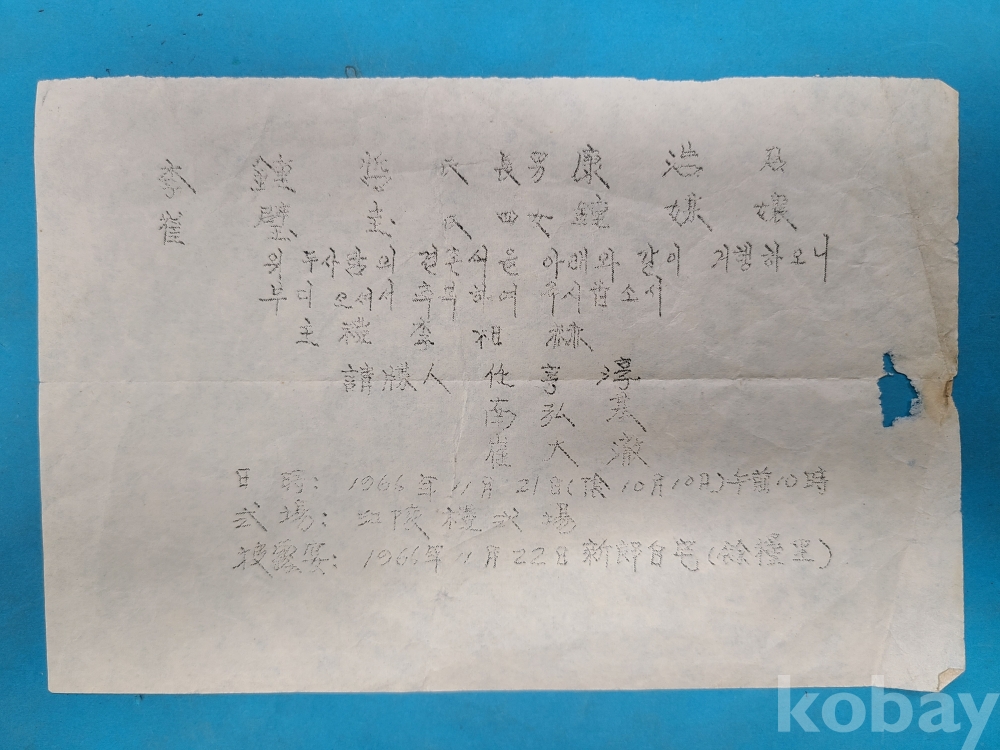 李 鍾 哲 氏 長男 康 浩 君
崔 璧 圭 氏 四女 鐘 嬢
위 두사람의 결혼식을 아래와 같이 거행하오니
부디 오셔서 축복하여 주시압소서
主 禮 李 相 林
請牒人 化 享 淳
南 弘 基
崔 大 澈
日 時: 1966年 11月 21日(陰10月10日)午前10時
式場: 江陵 校 式場
披露宴: 1966年 11月 22日 新郎自宅(餘糧里)
kobay